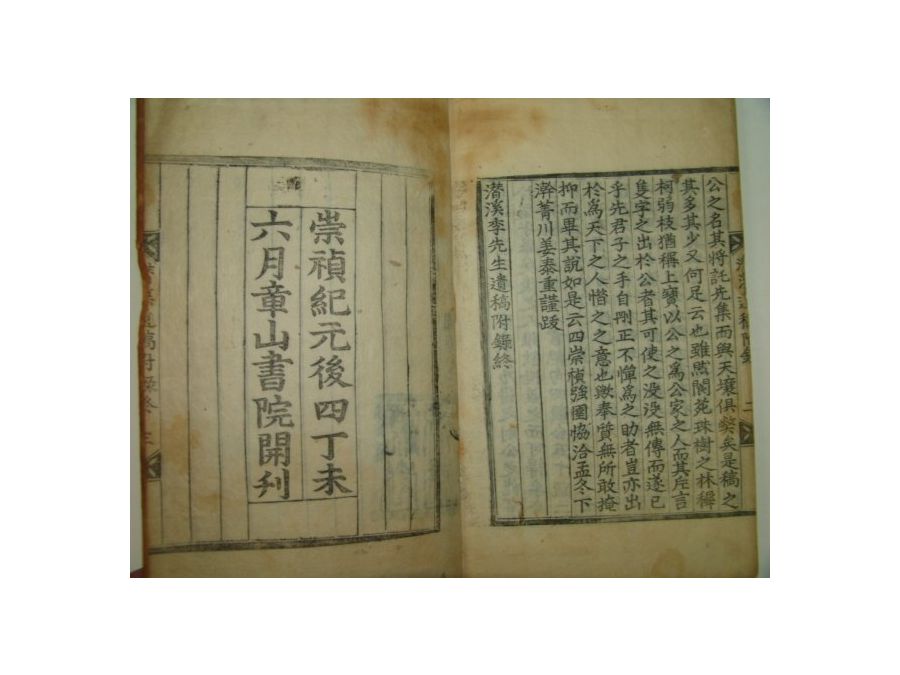 公之名其將託先集而與天壤俱獘矣是稿之
其多其少又何足云也雖然閬苑珠樹之林稱
柯弱枝猶稱上寶以公之爲公家之人而其片言
隻字之出於公者其可使之没没無傳而遂已
乎先君子之手自刪正不憚爲之助者豈亦出
於爲天下之人惜之之意也歟奉質無所敢掩
抑而畢其說如是云四崇禎強圉協洽孟冬下
澣菁川姜泰重謹跋
潛溪李先生遺稿附錄終
潛溪遺稿附錄
二
崇禎紀元後四丁未
六月章山書院開刋
潛溪遺稿附錄終
三